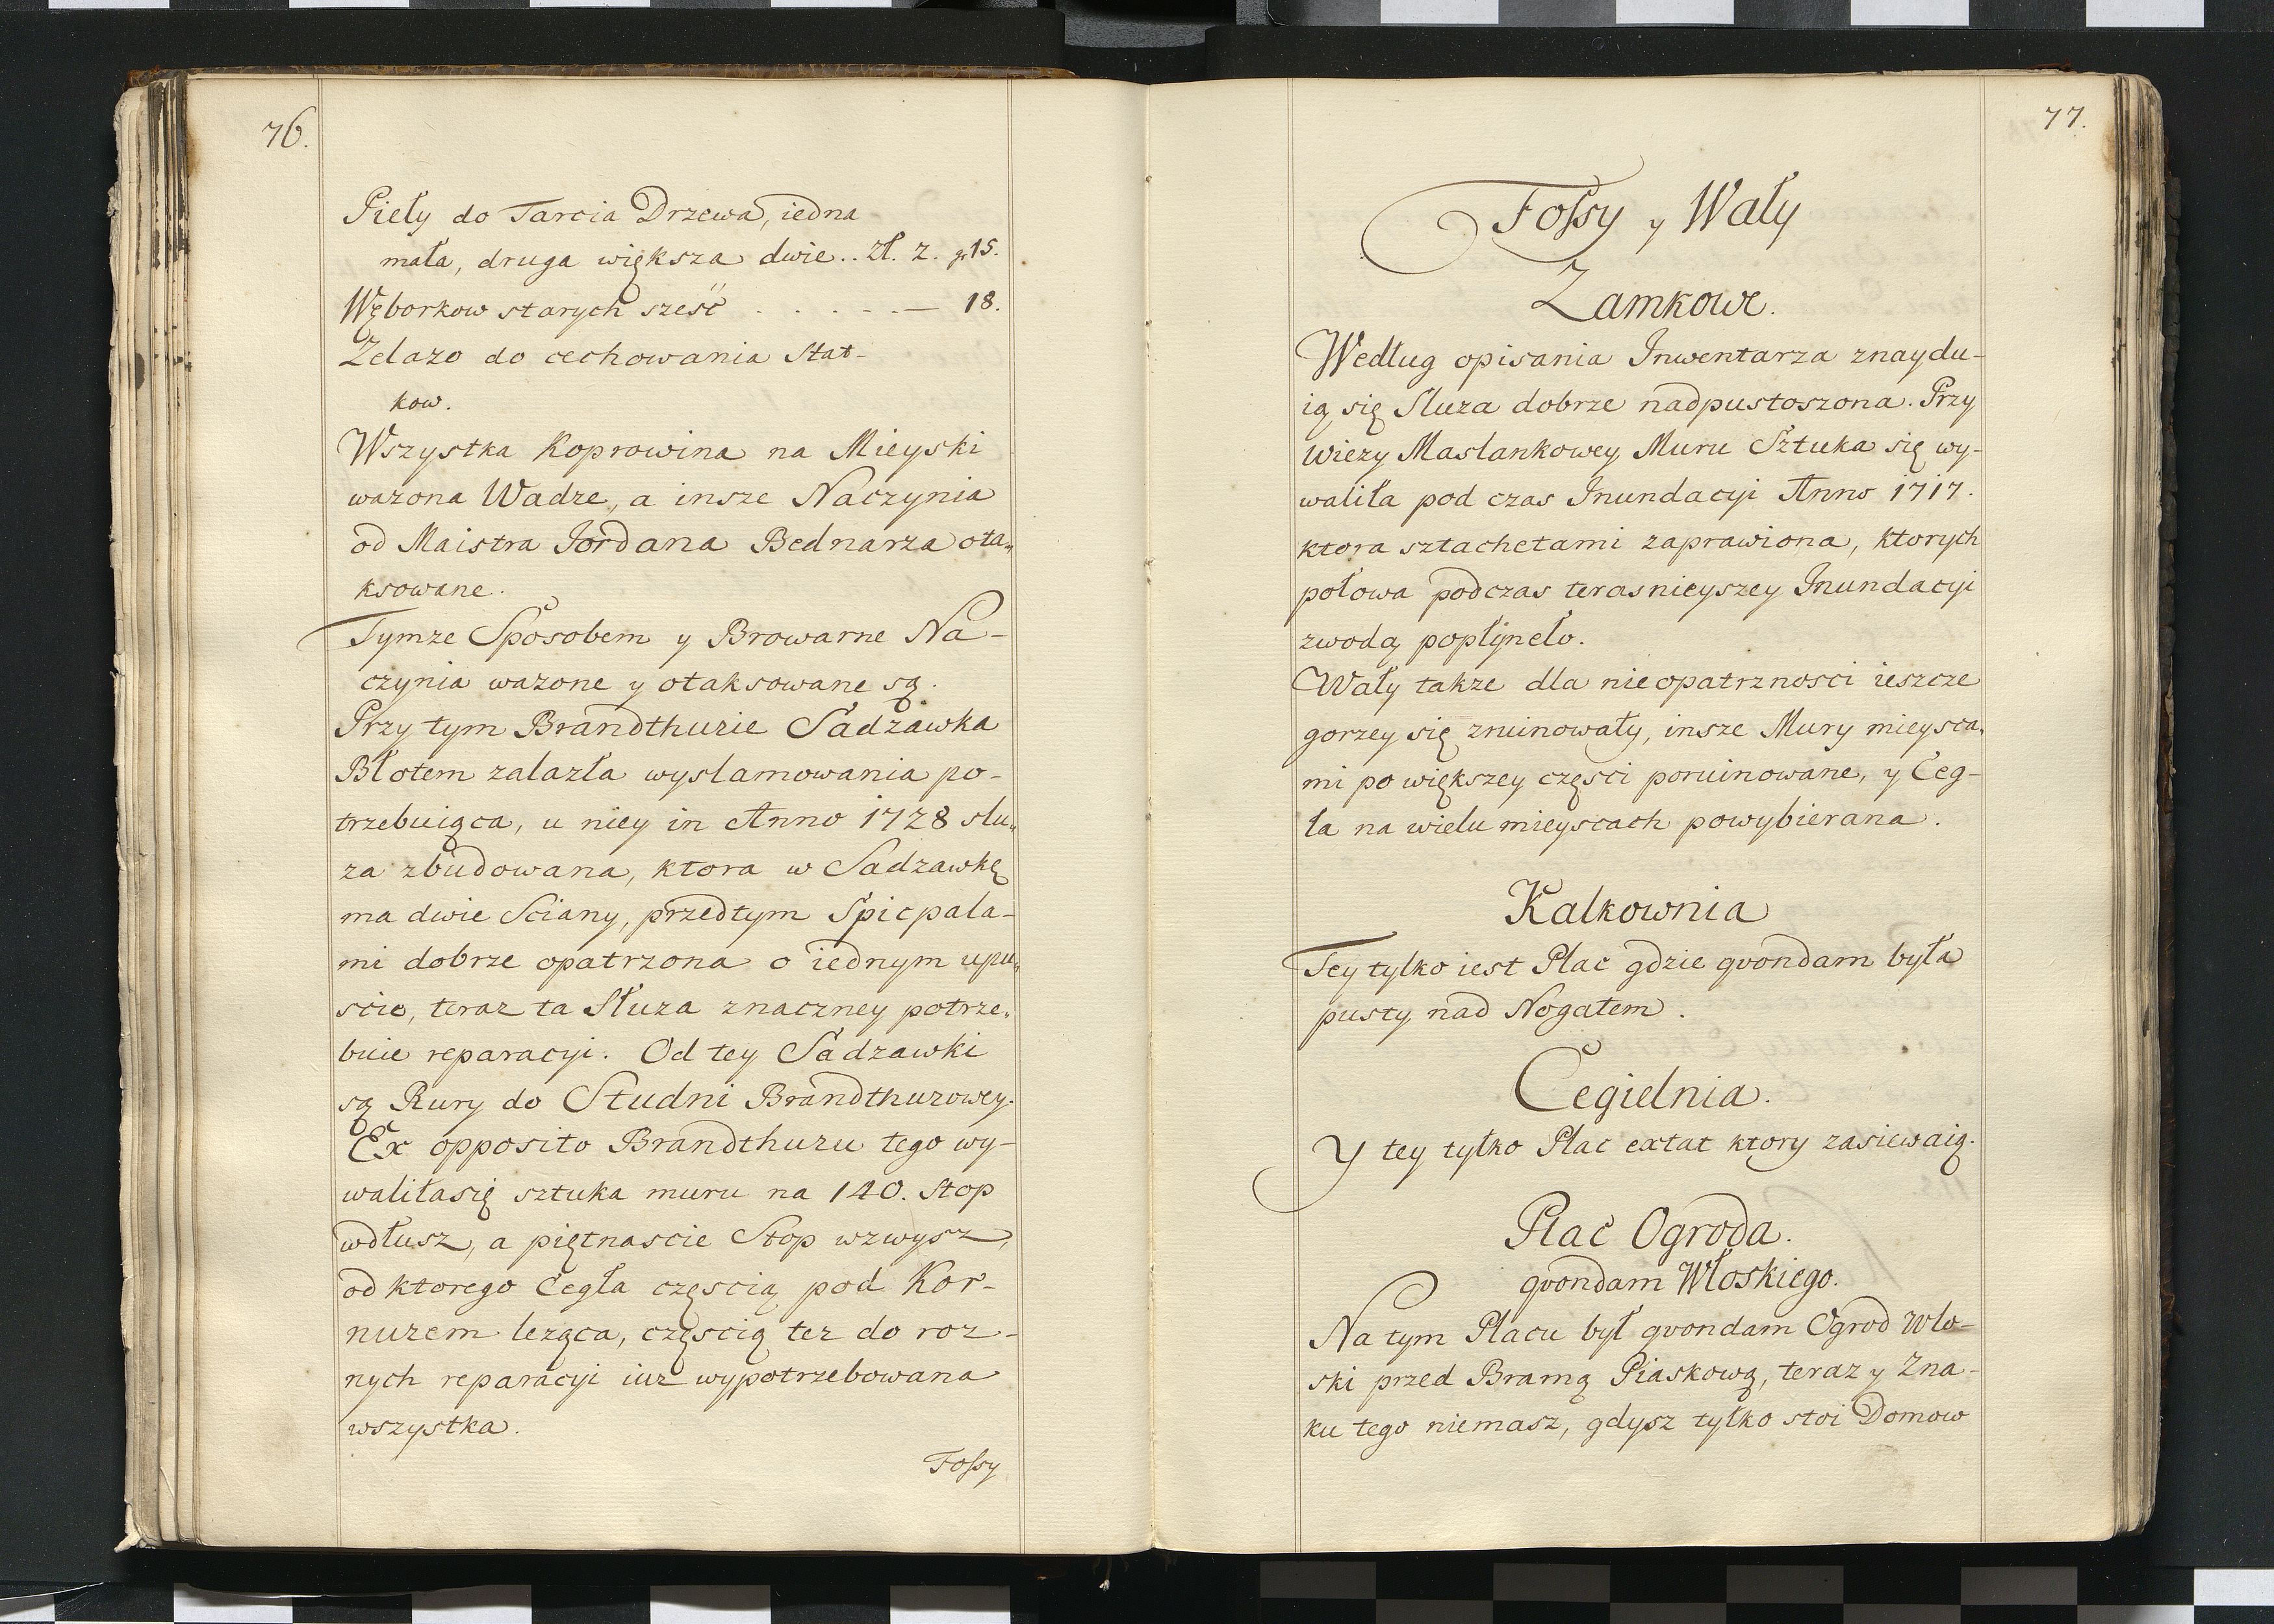 76.
Pieły do Tarcia Drzewa, iedna
mała, druga większa dwie.. Zł. 2. gr 15.
Węborkow starych sześć . . . . . — 18.
Zelazo do cechowania Stat-
kow.
Wszystka Koprowina na Mieyski
wazona Wadze, a insze Naczynia
od Maistra Jordana Bednarza ota-
ksowane.
Tymze Sposobem y Browarne Na-
czynia wazone y otaksowane są.
Przy tym Brandthuzie Sadzawka
Błotem zalazła wyslamowania po-
trzebuiąca, u niey in Anno 1728 slu-
za zbudowana, ktora w Sadzawkę
ma dwie Sciany, przedtym Spicpala-
mi dobrze opatrzona o iednym upu-
scie, teraz ta Słuza znaczney potrze-
buie reparacyi. Od tey Sadzawki
są Rury do Studni Brandthuzowey.
Ex opposito Brandthuzu tego wy-
waliłasię sztuka muru na 140. Stop
wdłusz, a piętnascie Stop wzwysz,
od ktorego Cegła częscią pod Kor-
nuzem leząca, częscią tez do roz-
nych reparacyi iuz wypotrzebowana
wszystka.
Fossy
77.
Fossy y Wały
Zamkowe.
Według opisania Inwentarza znaydu-
ią się Sluza dobrze nadpustoszona. Przy
wiezy Maslankowey Muru Sztuka się wy-
waliła pod czas Inundacyi Anno 1717.
ktora sztachetami zaprawiona, ktorych
połowa podczas terasnieyszey Inundacyi
zwodą popłyneło.
Wały takze dla nieopatrznosci ieszcze
gorzey się zruinowały, insze Mury mieysca-
mi po większey częsci poruinowane, y Ceg-
ła na wielu mieyscach powybierana.
Kalkownia
Tey tylko iest Plac gdzie qvondam była
pusty nad Nogatem.
Cegielnia.
Y tey tylko Plac extat ktory zasiewaią.
Plac Ogroda.
qvondam Włoskiego.
Na tym Placu był qvondam Ogrod Wło-
ski przed Bramą Piaskową, teraz y Zna-
ku tego niemasz, gdysz tylko stoi Domow